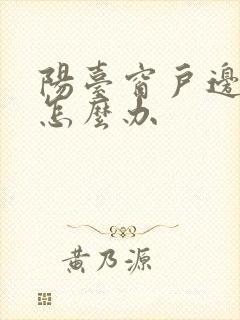 陽臺窗戶邊
怎麼办
黃乃源